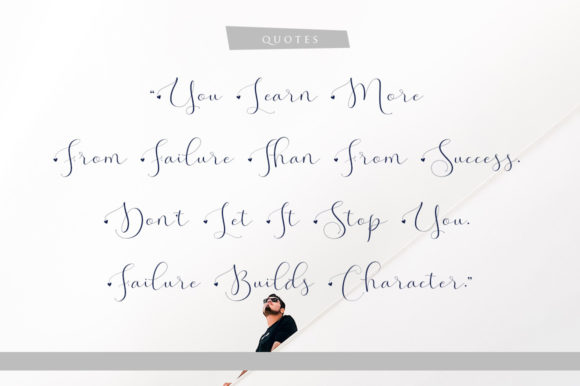 QUOTES
“You Learn More
From Failure Than From Success.
Don't Let It Stop You.
Failure Builds Character.”